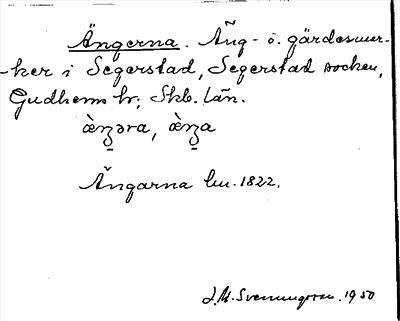 Ängerna. Äng- o. gärdesmar-
-ker i Segerstad, Segerstad socken,
Gudhems hr; Skb. län.
æ̀ŋəra, æ̀ŋa
Ängarna lm. 1822.
1950